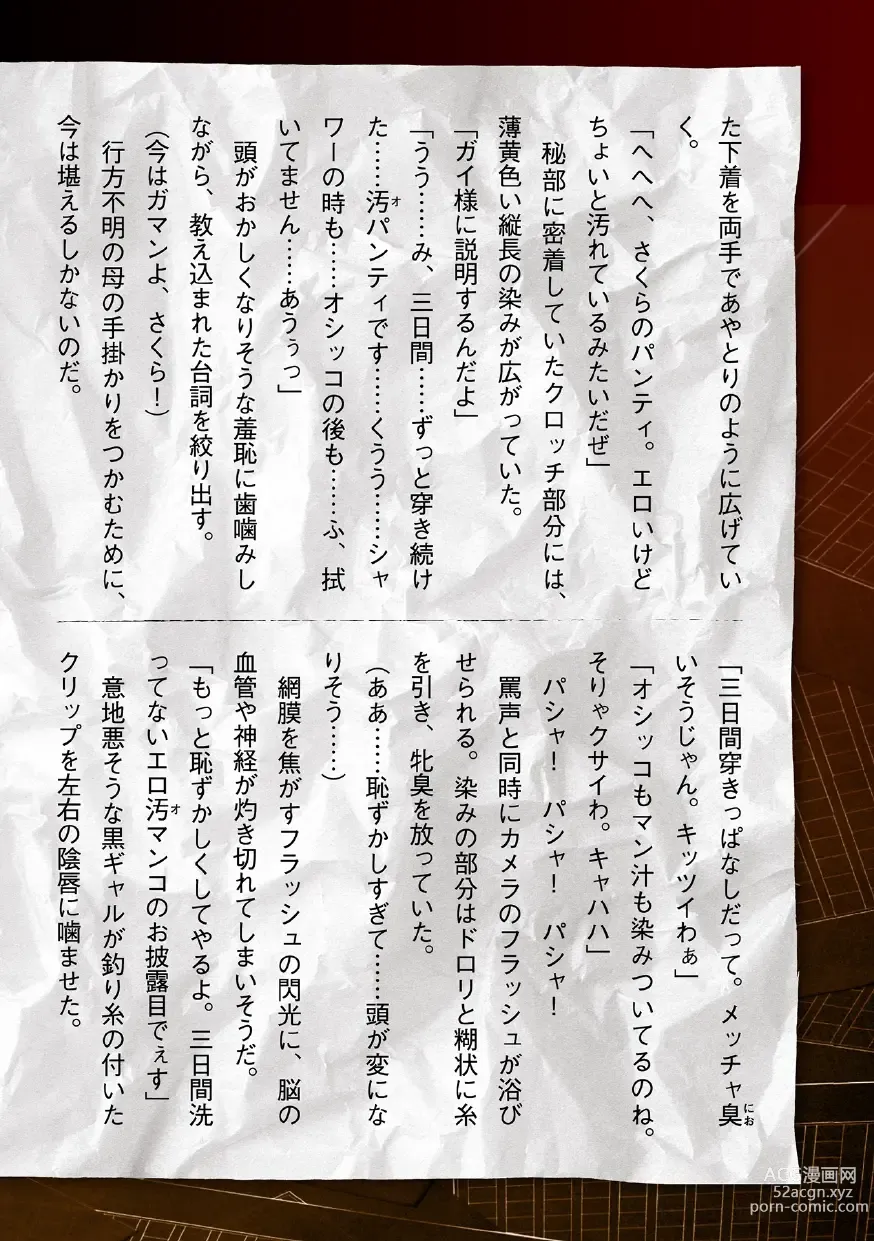 た下着を両手であやとりのように広げてい
く。
「へへへ、さくらのパンティ。エロいけど
ちょいと汚れているみたいだぜ」
秘部に密着していたクロッチ部分には、
薄黄色い縦長の染みが広がっていた。
「ガイ様に説明するんだよ」
「うう……み、三日間……ずっと穿き続け
た……汚パンティです……くうう……シャ
ワーの時も……オシッコの後も……ふ、拭
いてません……あうぅっ」
頭がおかしくなりそうな羞恥に歯噛みし
ながら、教え込まれた台詞を絞り出す。
（今はガマンよ、さくら！）
行方不明の母の手掛かりをつかむために、
今は堪えるしかないのだ。
「三日間穿きっぱなしだって。メッチャ臭
いそうじゃん。キッツイわぁ」
「オシッコもマン汁も染みついてるのね。
そりゃクサイわ。キャハハ」
パシャ！　パシャ！　パシャ！
罵声と同時にカメラのフラッシュが浴び
せられる。染みの部分はドロリと糊状に糸
を引き、牝臭を放っていた。
（ああ……恥ずかしすぎて……頭が変にな
りそう……）
網膜を焦がすフラッシュの閃光に、脳の
血管や神経が灼き切れてしまいそうだ。
「もっと恥ずかしくしてやるよ。三日間洗
ってないエロ汚マンコのお披露目でぇす」
意地悪そうな黒ギャルが釣り糸の付いた
クリップを左右の陰唇に噛ませた。
ACG漫画网
52acgn.xyz
porn-comic.com